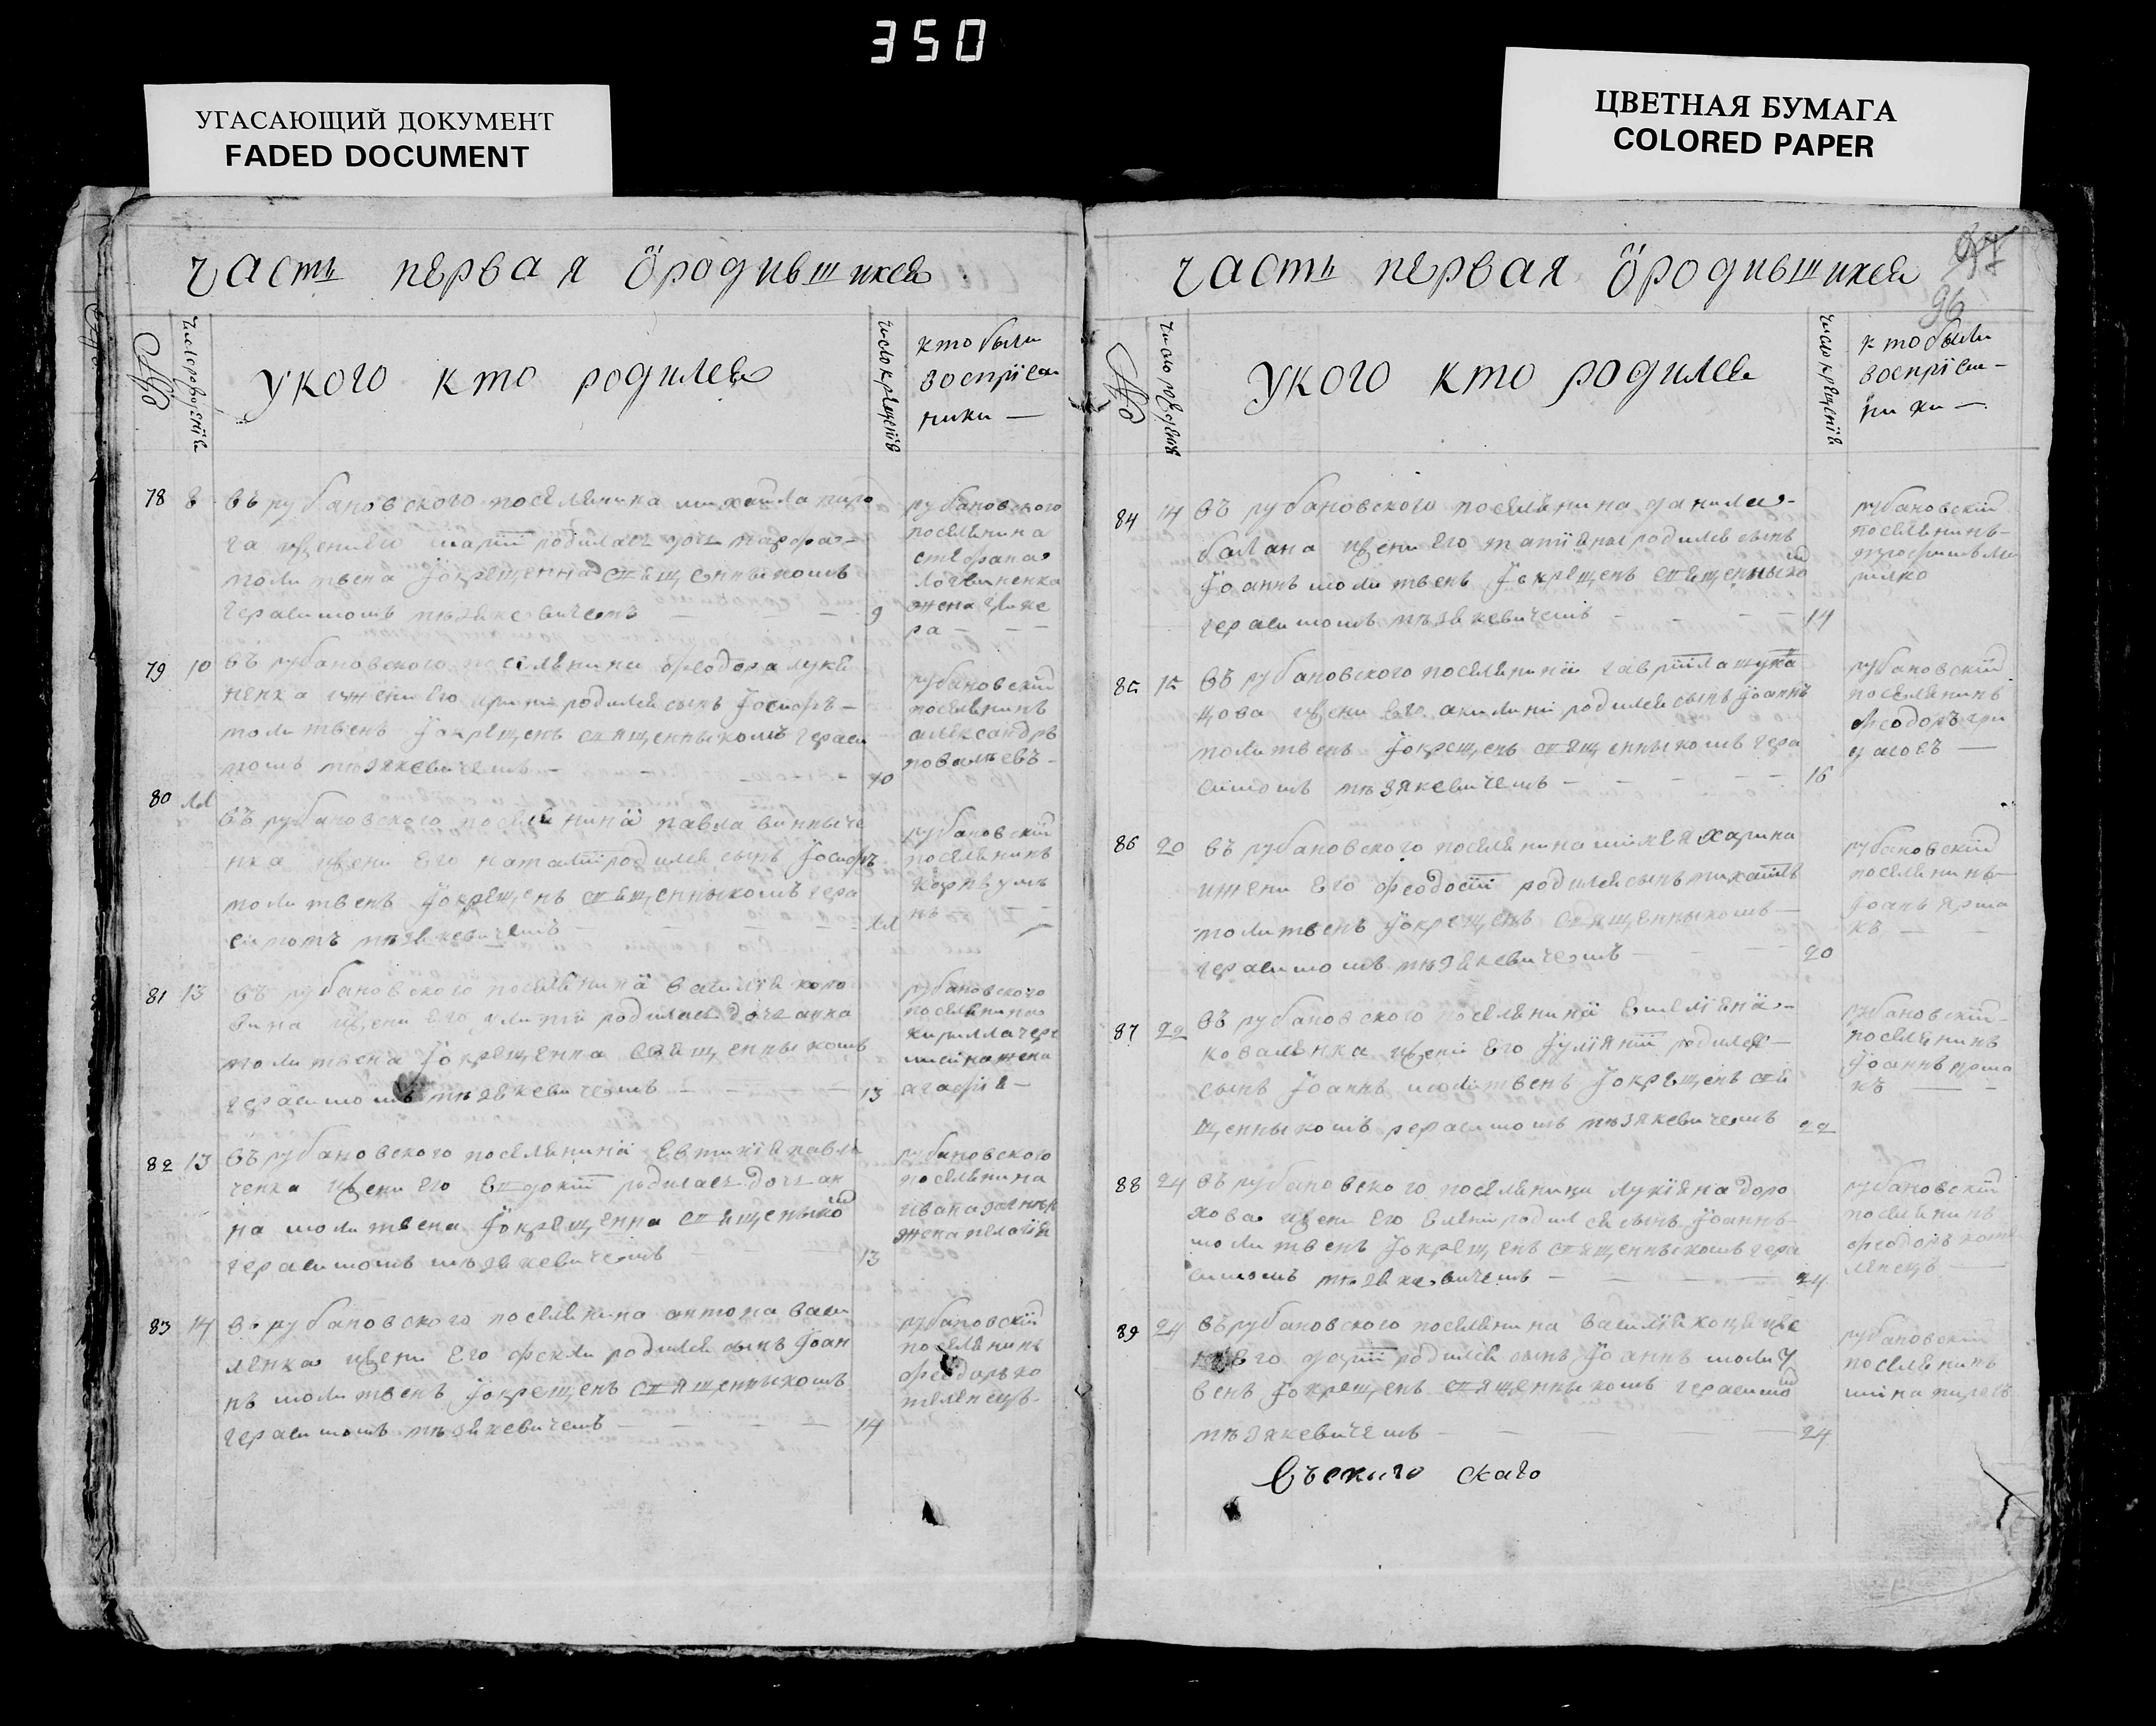 350
УГАСАЮЩИЙ ДОКУМЕНТ
FADED DOCUMENT
ЦВЕТНАЯ БУМАГА
COLORED PAPER
Часть первая ѽ родившихся
№
число рожденія
у кого кто родился
число крещенія
кто были
воспріем
ники —
78 8 въ рубановского поселянина михаила пиро
га и жени его маріи родилась дочь
молитвена і окрещенна священникомъ
герасимомъ мѣзякевичемъ — — — 9
рубановского
поселянина
стефана
логвиненка
жена глике
ра — — —
79 10 въ рубановского поселянина феодора луке
ненка и жени его ирини родился сынъ іосифъ —
молитвенъ і окрещенъ священникомъ гераси
момъ мѣзякевичемъ — — — 10
рубановскій
поселянинъ
александръ
80 11
въ рубановского поселянина павла винниче
нка и жени его наталіи родился сынъ іосифъ
молитвенъ і окрещенъ священникомъ гера
симомъ мѣзякевичемъ — — — 11
рубановскій
поселянинъ
81 13 въ рубановского поселянина василія коро
и жени его родилась дочь анна
молитвена і окрещенна священникомъ
герасимомъ мѣзякевичемъ — — — 13
рубановского
поселянина
кирилла
жена
агафія —
82 13 въ рубановского поселянина евтихія павли
ченка и жени его евдокіи родилась дочь ан
на молитвена і окрещенна священико
герасимомъ мѣзякевичемъ — 13
рубановского
поселянина
ивана
жена пелагія
83 14 въ рубановского поселянина антона васи
ленка и жени его фекли родился сынъ іоан
нъ молитвенъ і окрещенъ священникомъ
герасимомъ мѣзякевичемъ — — — — 14
рубановскій
поселянинъ
феодоръ ко
теленецъ —
Часть первая ѽ родившихся
97
96
№
число рожденія
у кого кто родился
число крещенія
кто были
воспріем —
ники —
84 14 въ рубановского поселянина данила —
балана и жени его татіяны родился сынъ
іоаннъ молитвенъ і окрещенъ священнико
герасимомъ мѣзякевичемъ — — — — 14
рубановскій
поселянинъ —
85 15 въ рубановского поселянина гавріила
цова и жени его акилини родился сынъ іоаннъ
молитвенъ і окрещенъ священникомъ гера
симомъ мѣзякевичемъ — — — — — 16
рубановскій
поселянинъ
феодоръ
86 20 въ рубановского поселянина
и жени его феодосіи родился сынъ михаилъ
молитвенъ і окрещенъ священникомъ —
герасимомъ мѣзякевичемъ — — — 20
рубановскій
поселянинъ —
іоанъ ярма
къ — —
87 22 въ рубановского поселянина емеліяна —
коваленка и жени его іуліяніи родился —
сынъ іоаннъ молитвенъ і окрещенъ свя
щенникомъ герасимомъ мѣзякевичемъ 22
рубановскій —
поселянинъ
іоаннъ ярма
къ — —
88 24 въ рубановского поселянина лукіяна доро
хова и жени его елени родился сынъ іоаннъ —
молитвенъ і окрещенъ священникомъ гера
симомъ мѣзякевичемъ — — — 24
рубановскій
поселянинъ
феодоръ коте
ленецъ —
89 24 въ рубановского поселянина василія и же
ни его даріи родился сынъ іоаннъ молит
венъ і окрещенъ священникомъ герасимо
мѣзякевичемъ — — — 24
рубановскій
поселянинъ
мина пирогъ